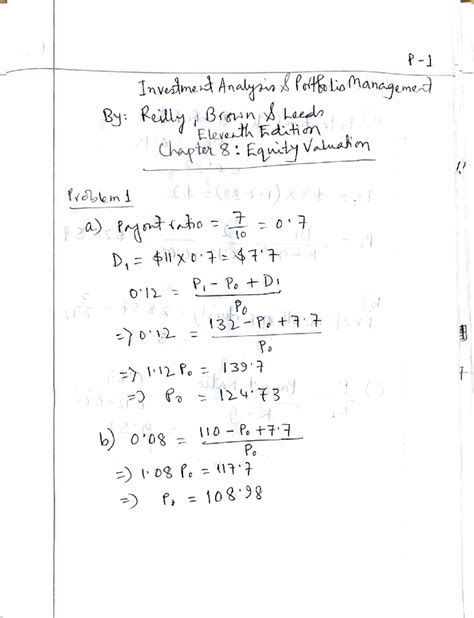 P-1
Investment Analysis & Portfolio Management
By: Reilly, Brown & Leeds
Eleventh Edition
Chapter 8: Equity Valuation
Problem 1
a) Payout ratio = 7/10 = 0.7
D₁ = $11 × 0.7 = $7.7
0.12 = (P₁ - P₀ + D₁)/P₀
=> 0.12 = (132 - P₀ + 7.7)/P₀
=> 1.12 P₀ = 139.7
=> P₀ = 124.73
b) 0.08 = (110 - P₀ + 7.7)/P₀
=> 1.08 P₀ = 117.7
=> P₀ = 108.98